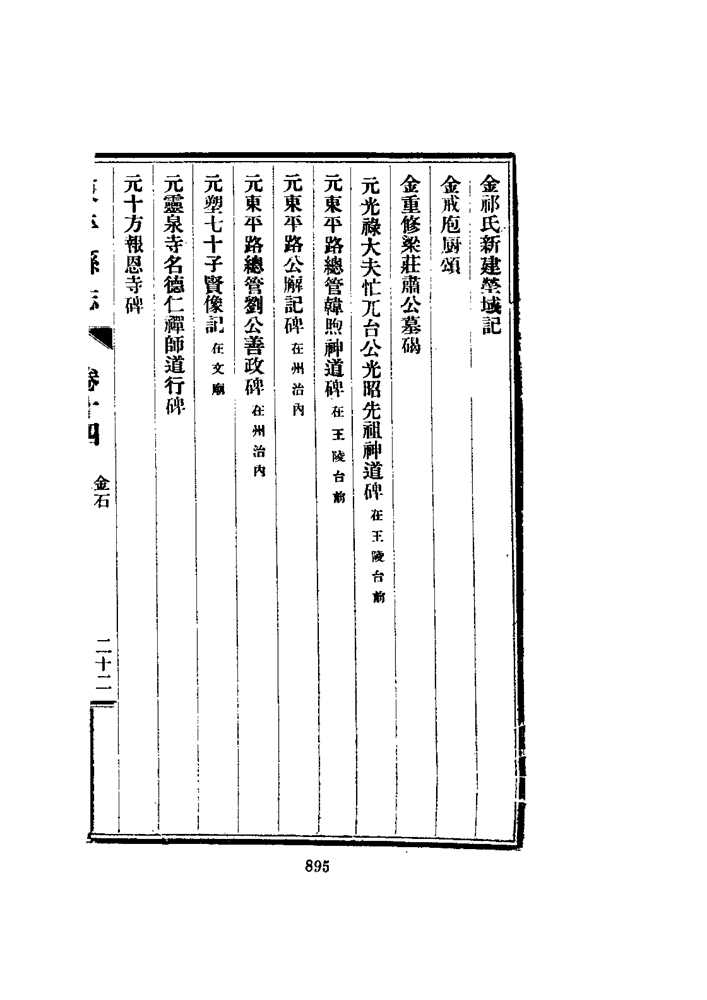 金祁氏新建塋域記
金戒庖廚頌
金重修梁莊肅公墓碣
元光祿大夫忙兀台公光昭先祖神道碑 在王陵台前
元東平路總管韓煦神道碑 在王陵台前
元東平路公廨記碑 在州治內
元東平路總管劉公善政碑 在州治內
元塑七十子賢像記 在文廟
元靈泉寺名德仁禪師道行碑
元十方報恩寺碑
平縣志 卷十四 金石 二十二
895